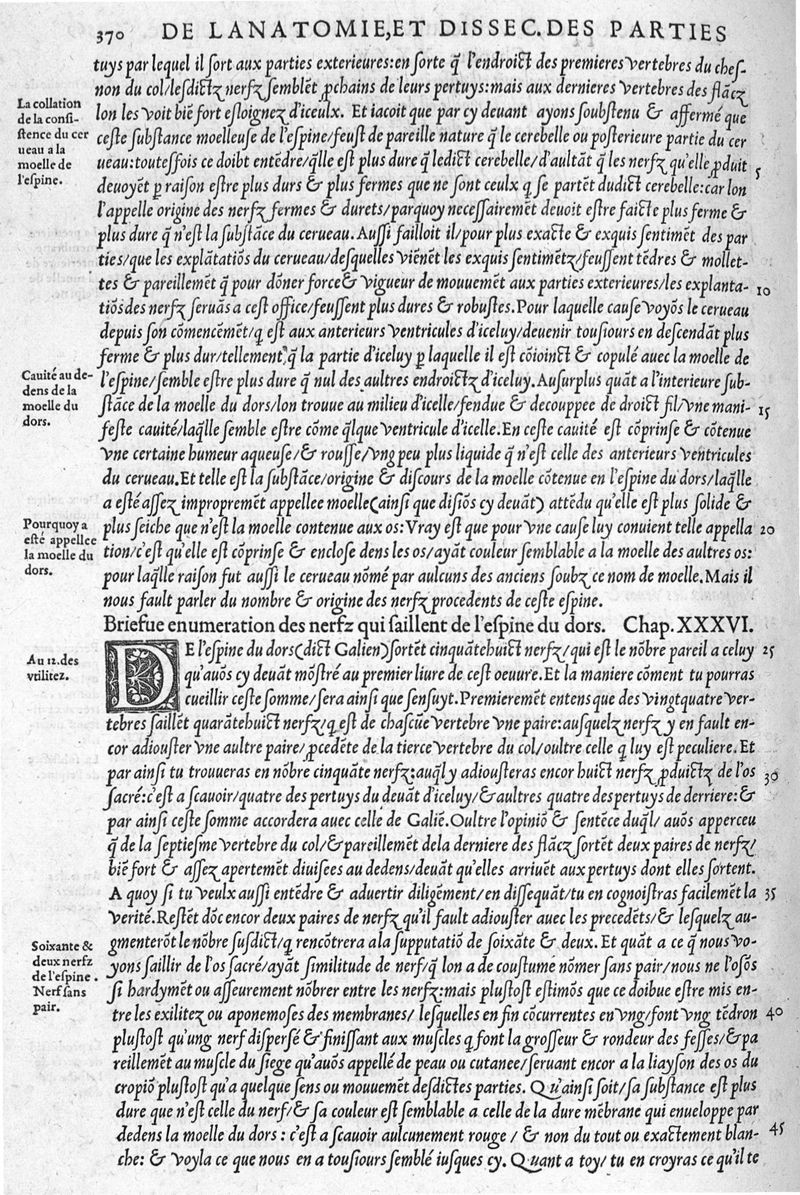 370 DE LANATOMIE, ET DISSEC. DES PARTIES
tuys par lequel il sort aux parties exterieures: en sorte q̃ l'endroict des premieres vertebres du ches-
non du col/lesdictz nerfz semblẽt ꝓchains de leurs pertuys: mais aux dernieres vertebres des flãcz
La collation
de la consi-
stence du cer
ueau a la
moelle de
l'espine.
lon les voit biẽ fort esloignez d'iceulx. Et iacoit que par cy deuant ayons soubstenu & affermé que
ceste substance moelleuse de l'espine/feust de pareille nature q̃ le cerebelle ou posterieure partie du cer
ueau: toutesfois ce doibt entẽdre/q̃lle est plus dure q̃ ledict cerebelle/d'aultãt q̃ les nerfz qu'elle ꝓduit
5
deuoyẽt ꝑ raison estre plus durs & plus fermes que ne sont ceulx q̃ se partẽt dudict cerebelle: car lon
l'appelle origine des nerfz fermes & durets/parquoy necessairemẽt deuoit estre faicte plus ferme &
plus dure q̃ n'est la substãce du cerueau. Aussi failloit il/pour plus exacte & exquis sentimẽt des par
ties/que les explãtatiõs du cerueau/desquelles viẽnẽt les exquis sentimẽtz/feussent tẽdres & mollet-
tes & pareillemẽt q̃ pour dõner force & vigueur de mouuemẽt aux parties exterieures/les explanta-
10
tiõs des nerfz seruãs a cest office/feussent plus dures & robustes. Pour laquelle cause voyõs le cerueau
depuis son cõmencẽmẽt/q̃ est aux anterieurs ventricules d'iceluy/deuenir tousiours en descendãt plus
ferme & plus dur/tellement q̃ la partie d'iceluy ꝑ laquelle il est cõioinct & copulé auec la moelle de
Cauité au de-
dens de la
moelle du
dors.
l'espine/semble estre plus dure q̃ nul des aultres endroictz d'iceluy. Au surplus quãt a l'interieure sub-
stãce de la moelle du dors/lon trouue au milieu d'icelle/fendue & decouppee de droict fil/vne mani-
15
feste cauité/laq̃lle semble estre cõme q̃lque ventricule d'icelle. En ceste cauité est cõprinse & cõtenue
vne certaine humeur aqueuse/& rousse/vng peu plus liquide q̃ n'est celle des anterieurs ventricules
du cerueau. Et telle est la substãce/origine & discours de la moelle cõtenue en l'espine du dors/laq̃lle
a esté assez impropremẽt appellee moelle (ainsi que disiõs cy deuãt) attẽdu qu'elle est plus solide &
Pourquoy a
esté appellee
la moelle du
dors.
plus seiche que n'est la moelle contenue aux os: Vray est que pour vne cause luy conuient telle appella
20
tion/c'est qu'elle est cõprinse & enclose dens les os/ayãt couleur semblable a la moelle des aultres os:
pour laq̃lle raison fut aussi le cerueau nõmé par aulcuns des anciens soubz ce nom de moelle. Mais il
nous fault parler du nombre & origine des nerfz procedents de ceste espine.
Briefue enumeration des nerfz qui saillent de l'espine du dors. Chap. XXXVI.
Au 12. des
vtilitez.
DE l'espine du dors (dict Galien) sortẽt cinquãtehuict nerfz/qui est le nõbre pareil a celuy
25
qu'auõs cy deuãt mõstré au premier liure de cest oeuure. Et la maniere cõment tu pourras
cueillir ceste somme/sera ainsi que sensuyt. Premieremẽt entens que des vingtquatre ver-
tebres saillẽt quarãtehuict nerfz/q̃ est de chascũe vertebre vne paire: ausquelz nerfz y en fault en-
cor adiouster vne aultre paire/ꝓcedẽte de la tierce vertebre du col/oultre celle q̃ luy est peculiere. Et
par ainsi tu trouueras en nõbre cinquãte nerfz: auq̃l y adiousteras encor huict nerfz ꝓduictz de l'os
30
sacré: c'est a scauoir/quatre des pertuys du deuãt d'iceluy/& aultres quatre des pertuys de derriere: &
par ainsi ceste somme accordera auec celle de Galiẽ. Oultre l'opiniõ & sentẽce duq̃l/auõs apperceu
q̃ de la septiesme vertebre du col/& pareillemẽt de la derniere des flãcz sortẽt deux paires de nerfz/
biẽ fort & assez apertemẽt diuisees au dedens/deuãt qu'elles arriuẽt aux pertuys dont elles sortent.
A quoy si tu veulx aussi entẽdre & aduertir diligẽment/en dissequãt/tu en cognoistras facilemẽt la
35
verité. Restẽt dõc encor deux paires de nerfz qu'il fault adiouster auec les precedẽts/& lesquelz au-
Soixante &
deux nerfz
de l'espine.
Nerf sans
pair.
gmenterõt le nõbre susdict/q̃ rencõtrera a la supputatiõ de soixãte & deux. Et quãt a ce q̃ nous vo-
yons saillir de l'os sacré/ayãt similitude de nerf/q̃ lon a de coustume nõmer sans pair/nous ne l'osõs
si hardymẽt ou asseurement nõbrer entre les nerfz: mais plustost estimõs que ce doibue estre mis en-
tre les exilitez ou aponemoses des membranes/lesquelles en fin cõcurrentes en vng/font vng tẽdron
40
plustost qu'ung nerf dispersé & finissant aux muscles q̃ font la grosseur & rondeur des fesses/& pa
reillemẽt au muscle du siege qu'auõs appellé de peau ou cutanee/seruant encor a la liayson des os du
cropiõ plustost qu'a quelque sens ou mouuemẽt desdictes parties. Qu'ainsi soit/sa substance est plus
dure que n'est celle du nerf/& sa couleur est semblable a celle de la dure mẽbrane qui enueloppe par
dedens la moelle du dors: c'est a scauoir aulcunement rouge/& non du tout ou exactement blan-
45
che: & voyla ce que nous en a tousiours semblé iusques cy. Quant a toy/tu en croyras ce qu'il te